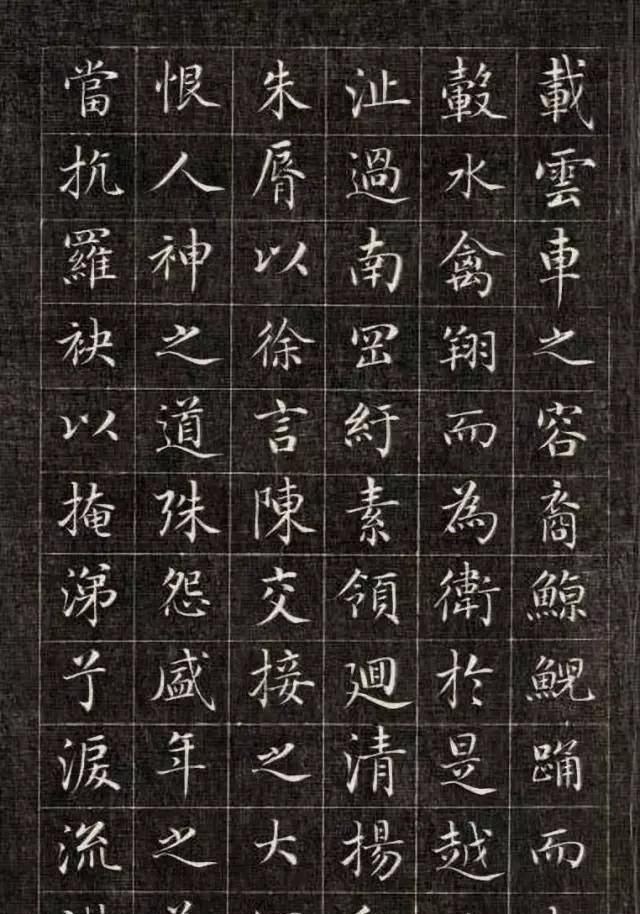 載雲車之容裔鯨鯢踊而
轂水禽翔而為衛於是越
沚過南岡紆素領廻清揚
朱脣以徐言陳交接之大
恨人神之道殊怨盛年之
當抗羅袂以掩涕兮淚流